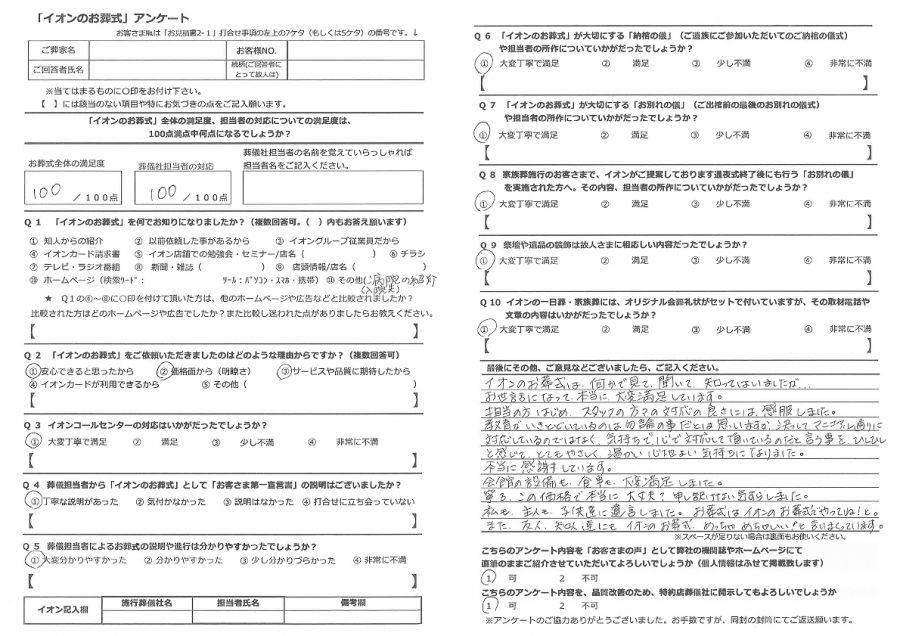 「イオンのお葬式」アンケート
お客さま№は「お見積書2-1」打合せ事項の左上の7ケタ（もしくは5ケタ）の番号です。↓
ご葬家名
お客様NO.
ご回答者氏名
続柄(ご回答者に
とって故人は)
※当てはまるものに○印をお付け下さい。
【　】には該当のない項目や特にお気づきの点をご記入願います。
「イオンのお葬式」全体の満足度、担当者の対応についての満足度は、
100点満点中何点になるでしょうか？
お葬式全体の満足度
葬儀社担当者の対応
葬儀社担当者の名前を覚えていらっしゃれば
担当者名をご記入ください。
100 ／100点
100 ／100点
Q１　「イオンのお葬式」を何でお知りになりましたか？（複数回答可。（　）内もお答え願います）
① 知人からの紹介　② 以前依頼した事があるから　③ イオングループ従業員だから
④ イオンカード請求書　⑤ イオン店舗での勉強会・セミナー/店名（　）　⑥ チラシ
⑦ テレビ・ラジオ番組　⑧ 新聞・雑誌（　）　⑨ 店頭情報/店名（　）
⑩ ホームページ（検索ﾜｰﾄﾞ：　ﾂｰﾙ・パソコン・スマホ・携帯）　⑪ その他(病院の紹介
(入院先)
★　Q１の④～⑩に○印を付けて頂いた方は、他のホームページや広告などと比較されましたか？
比較された方はどのホームページや広告でしたか？また比較し迷われた点がありましたらお教えください。
【　】
Q２　「イオンのお葬式」をご依頼いただきましたのはどのような理由からですか？（複数回答可）
①安心できると思ったから　②価格面から（明瞭さ）　③サービスや品質に期待したから
④ イオンカードが利用できるから　⑤ その他（　）
【　】
Q３　イオンコールセンターの対応はいかがだったでしょうか？
① 大変丁寧で満足　② 満足　③ 少し不満　④ 非常に不満
【　】
Q４　葬儀担当者から「イオンのお葬式」として「お客さま第一宣言書」の説明はございましたか？
①丁寧な説明があった　② 気付かなかった　③ 説明はなかった　④ 打合せに立ち会っていない
【　】
Q５　葬儀担当者によるお葬式の説明や進行は分かりやすかったでしょうか？
①大変分かりやすかった　② 分かりやすかった　③ 少し分かりづらかった　④ 非常に不満
【　】
イオン記入欄
施行葬儀社名
担当者氏名
備考欄
Q６　「イオンのお葬式」が大切にする「納棺の儀」（ご遺族にご参加いただいてのご納棺の儀式）
や担当者の所作についていかがだったでしょうか？
① 大変丁寧で満足　② 満足　③ 少し不満　④ 非常に不満
【　】
Q７　「イオンのお葬式」が大切にする「お別れの儀」（ご出棺前の最後のお別れの儀式）
や担当者の所作についていかがだったでしょうか？
① 大変丁寧で満足　② 満足　③ 少し不満　④ 非常に不満
【　】
Q８　家族葬施行のお客さまで、イオンがご提案しております通夜式終了後にも行う「お別れの儀」
を実施された方へ。その内容、担当者の所作についていかがだったでしょうか？
① 大変丁寧で満足　② 満足　③ 少し不満　④ 非常に不満
【　】
Q９　祭壇や遺品の装飾は故人さまに相応しい内容だったでしょうか？
① 大変丁寧で満足　② 満足　③ 少し不満　④ 非常に不満
【　】
Q10　イオンの一日葬・家族葬には、オリジナル会葬礼状がセットで付いていますが、その取材電話や
文章の内容はいかがだったでしょうか？
① 大変丁寧で満足　② 満足　③ 少し不満　④ 非常に不満
【　】
最後にその他、ご意見などございましたら、ご記入ください。
イオンのお葬式は、何かで見て、聞いて、知ってはいましたが…
お世話になって、本当に、大変満足しています。
担当の方はじめ、スタッフの方々の対応の良さには、感服しました。
教育がいきとどいているのは勿論の事だとは思いますが、決してマニュアル通りに
対応しているのではなく、気持ちで、心で対応して頂いているのだと言う事を、ひしひし
と感じて、とてもやさしく、温かい心地よい気持ちになりました。
本当に感謝しています。
会館の設備も、食事も、大変満足しました。
寧ろ、この価格で本当に大丈夫？申し訳けない気すらしました。
私も、主人も、子供達に遺言しました。お葬式はイオンのお葬式でやってね！と。
また、友人、知人達にも イオンのお葬式、めっちゃめちゃいい！と言いまくっています。
※スペースが足りない場合は裏面もお使いください。
こちらのアンケート内容を「お客さまの声」として弊社の機関誌やホームページにて
直筆のままご紹介させていただいてよろしいでしょうか（個人情報はふせて掲載致します）
1　可　2　不可
こちらのアンケート内容を、品質改善のため、特約店葬儀社に開示してもよろしいでしょうか
1　可　2　不可
※アンケートのご協力ありがとうございました。お手数ですが、同封の封筒にてご返送願います。